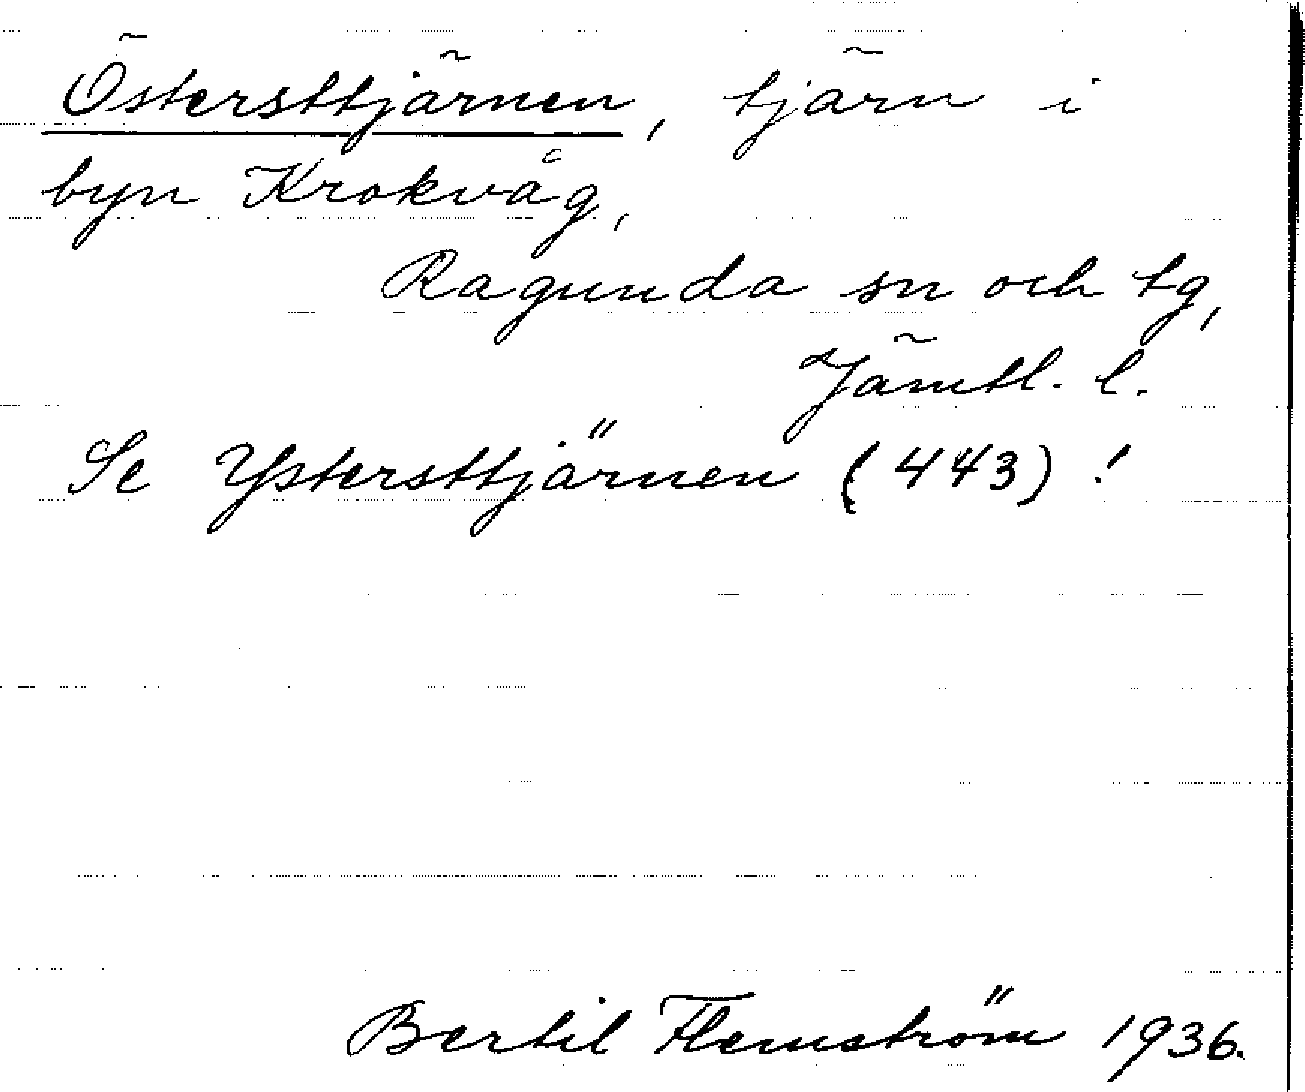 Östersttjärnen, tjärn i
byn Krokvåg,
Ragunda sn och tg,
Jämtl. l.
Se Ystersttjärnen (443)!
Bertil Flemström 1936.